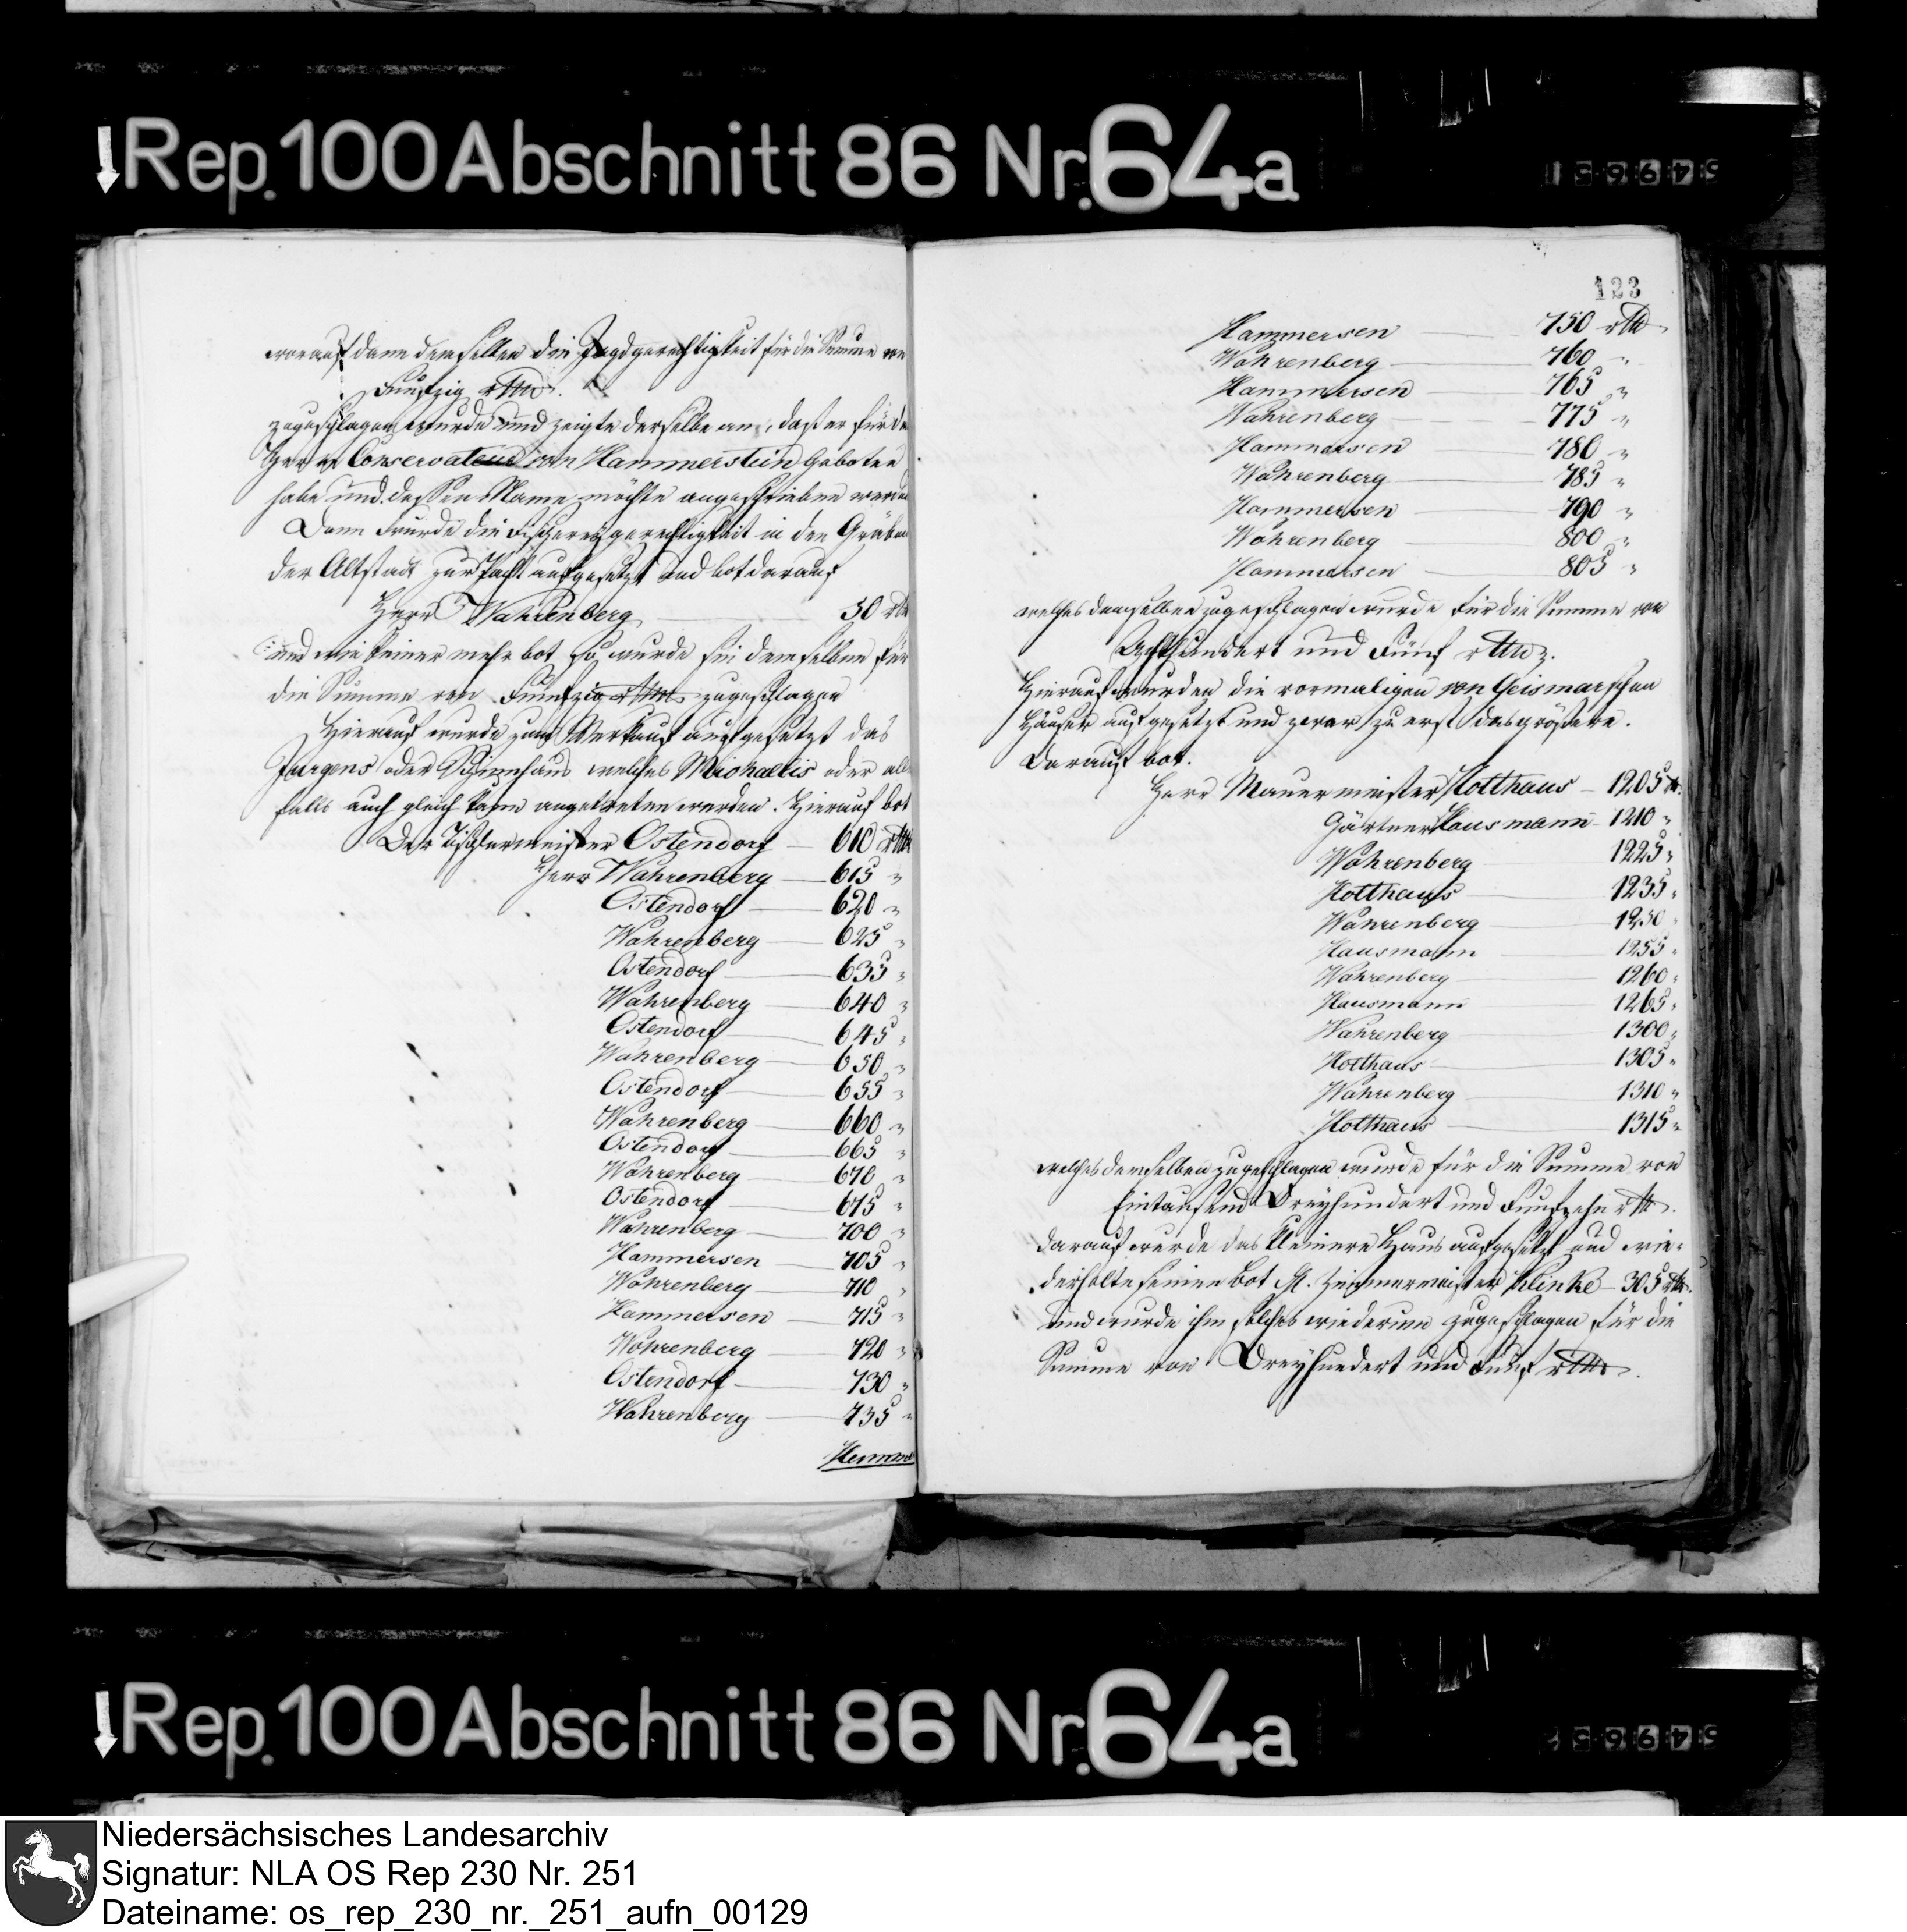 Rep. 100 Abschnitt 86 Nr. 64a
worauf dann demselben die Jagdgerechtigkeit für die Summe von
Funfzig rthlr.
zugeschlagen wurde und zeigte derselbe an, daß er für de
Herrn Conservateur von Hammerstein geboten
habe und dessen Name möchte angeschrieben werden
Dann wurde die Fischereygerechtigkeit in den Gräben
der Altstadt zur Pacht aufgesetzt und bot darauf
Herr Wahrenberg 50 rthlr
und wie keiner mehr bot so wurde sie demselben für
die Summe von Funfzig rthlr zugeschlagen
Hierauf wurde zum Verkauf aufgesetzt das
Jurgens oder welches Michaelis oder allen
falls auch gleich kann angetreten werden. Hierauf bot
Der Tischlermeister Ostendorf — 610 rthlr
Herr Wahrenberg — 615 "
Ostendorf — 620 "
Wahrenberg — 625 "
Ostendorf — 635 "
Wahrenberg — 640 "
Ostendorf — 645 "
Wahrenberg — 650 "
Ostendorf — 655 "
Wahrenberg — 660 "
Ostendorf — 665 "
Wahrenberg — 670 "
Ostendorf — 675 "
Wahrenberg — 700 "
Hammersen — 705 "
Wahrenberg — 710 "
Hammersen — 715 "
Wahrenberg — 720 "
Ostendorf — 730 "
Wahrenberg — 735 "
Hamme
123
Hammersen — 750 rthlr
Wahrenberg — 760 "
Hammersen — 765 "
Wahrenberg — 775 "
Hammersen — 780 "
Wahrenberg — 785 "
Hammersen — 790 "
Wahrenberg — 800 "
Hammersen — 805 "
welches demselben zugeschlagen wurde für die Summe von
Achthundert und Fünf rthlr.
Hierauf wurden die vormaligen von Geismarschen
Häuser aufgesetzt und zwar zu erst das größere.
Darauf bot.
Herr Mauermeister Holthaus — 1205 rt.
Gärtner Hausmann — 1210 "
Wahrenberg — 1225 "
Holthaus — 1235 "
Wahrenberg — 1250 "
Hausmann — 1255 "
Wahrenberg — 1260 "
Hausmann — 1265 "
Wahrenberg — 1300 "
Holthaus — 1305 "
Wahrenberg — 1310 "
Holthaus — 1315 "
welches demselben zugeschlagen wurde für die Summe von
Eintausend Dreyhundert und Funfzehn rth.
darauf wurde das kleinere Haus aufgesetzt und wie-
derholte seinen Bot H. Zimmermeister Klinke — 305 rth.
und wurde ihm solches wiederum zugeschlagen für die
Summe von Dreyhundert und Fünf rthlr.
Rep. 100 Abschnitt 86 Nr. 64a
Niedersächsisches Landesarchiv
Signatur: NLA OS Rep 230 Nr. 251
Dateiname: os_rep_230_nr._251_aufn_00129